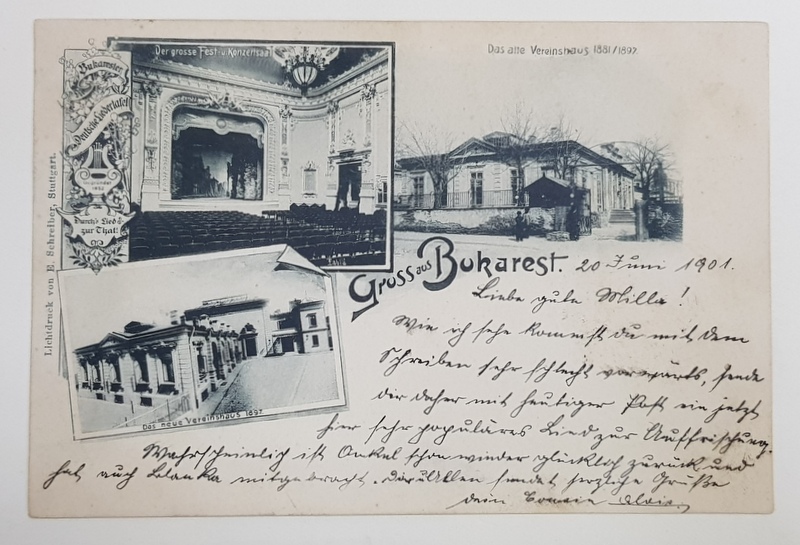 Der grosse Fest- u. Konzertsaal
Das alte Vereinshaus 1881/1897.
Bukarester
Deutsche Liedertafel
gegründet
1852
Durch's Lied
zur That!
Lichtdruck von E. Schreiber, Stuttgart.
Das neue Vereinshaus 1897.
Gruss aus Bukarest.
20 Juni 1901.
Liebe gute Milla!
Wie ich sehe kommst du mit dem
Schreiben sehr schlecht vorwärts, sende
dir daher mit heutiger Post ein jetzt
hier sehr populäres Lied zur Auffrischung.
Wahrscheinlich ist Onkel schon wieder glücklich zurück und
hat auch Blanka mitgebracht. Euch Allen sendet herzliche Grüße
dein Cousin Alois